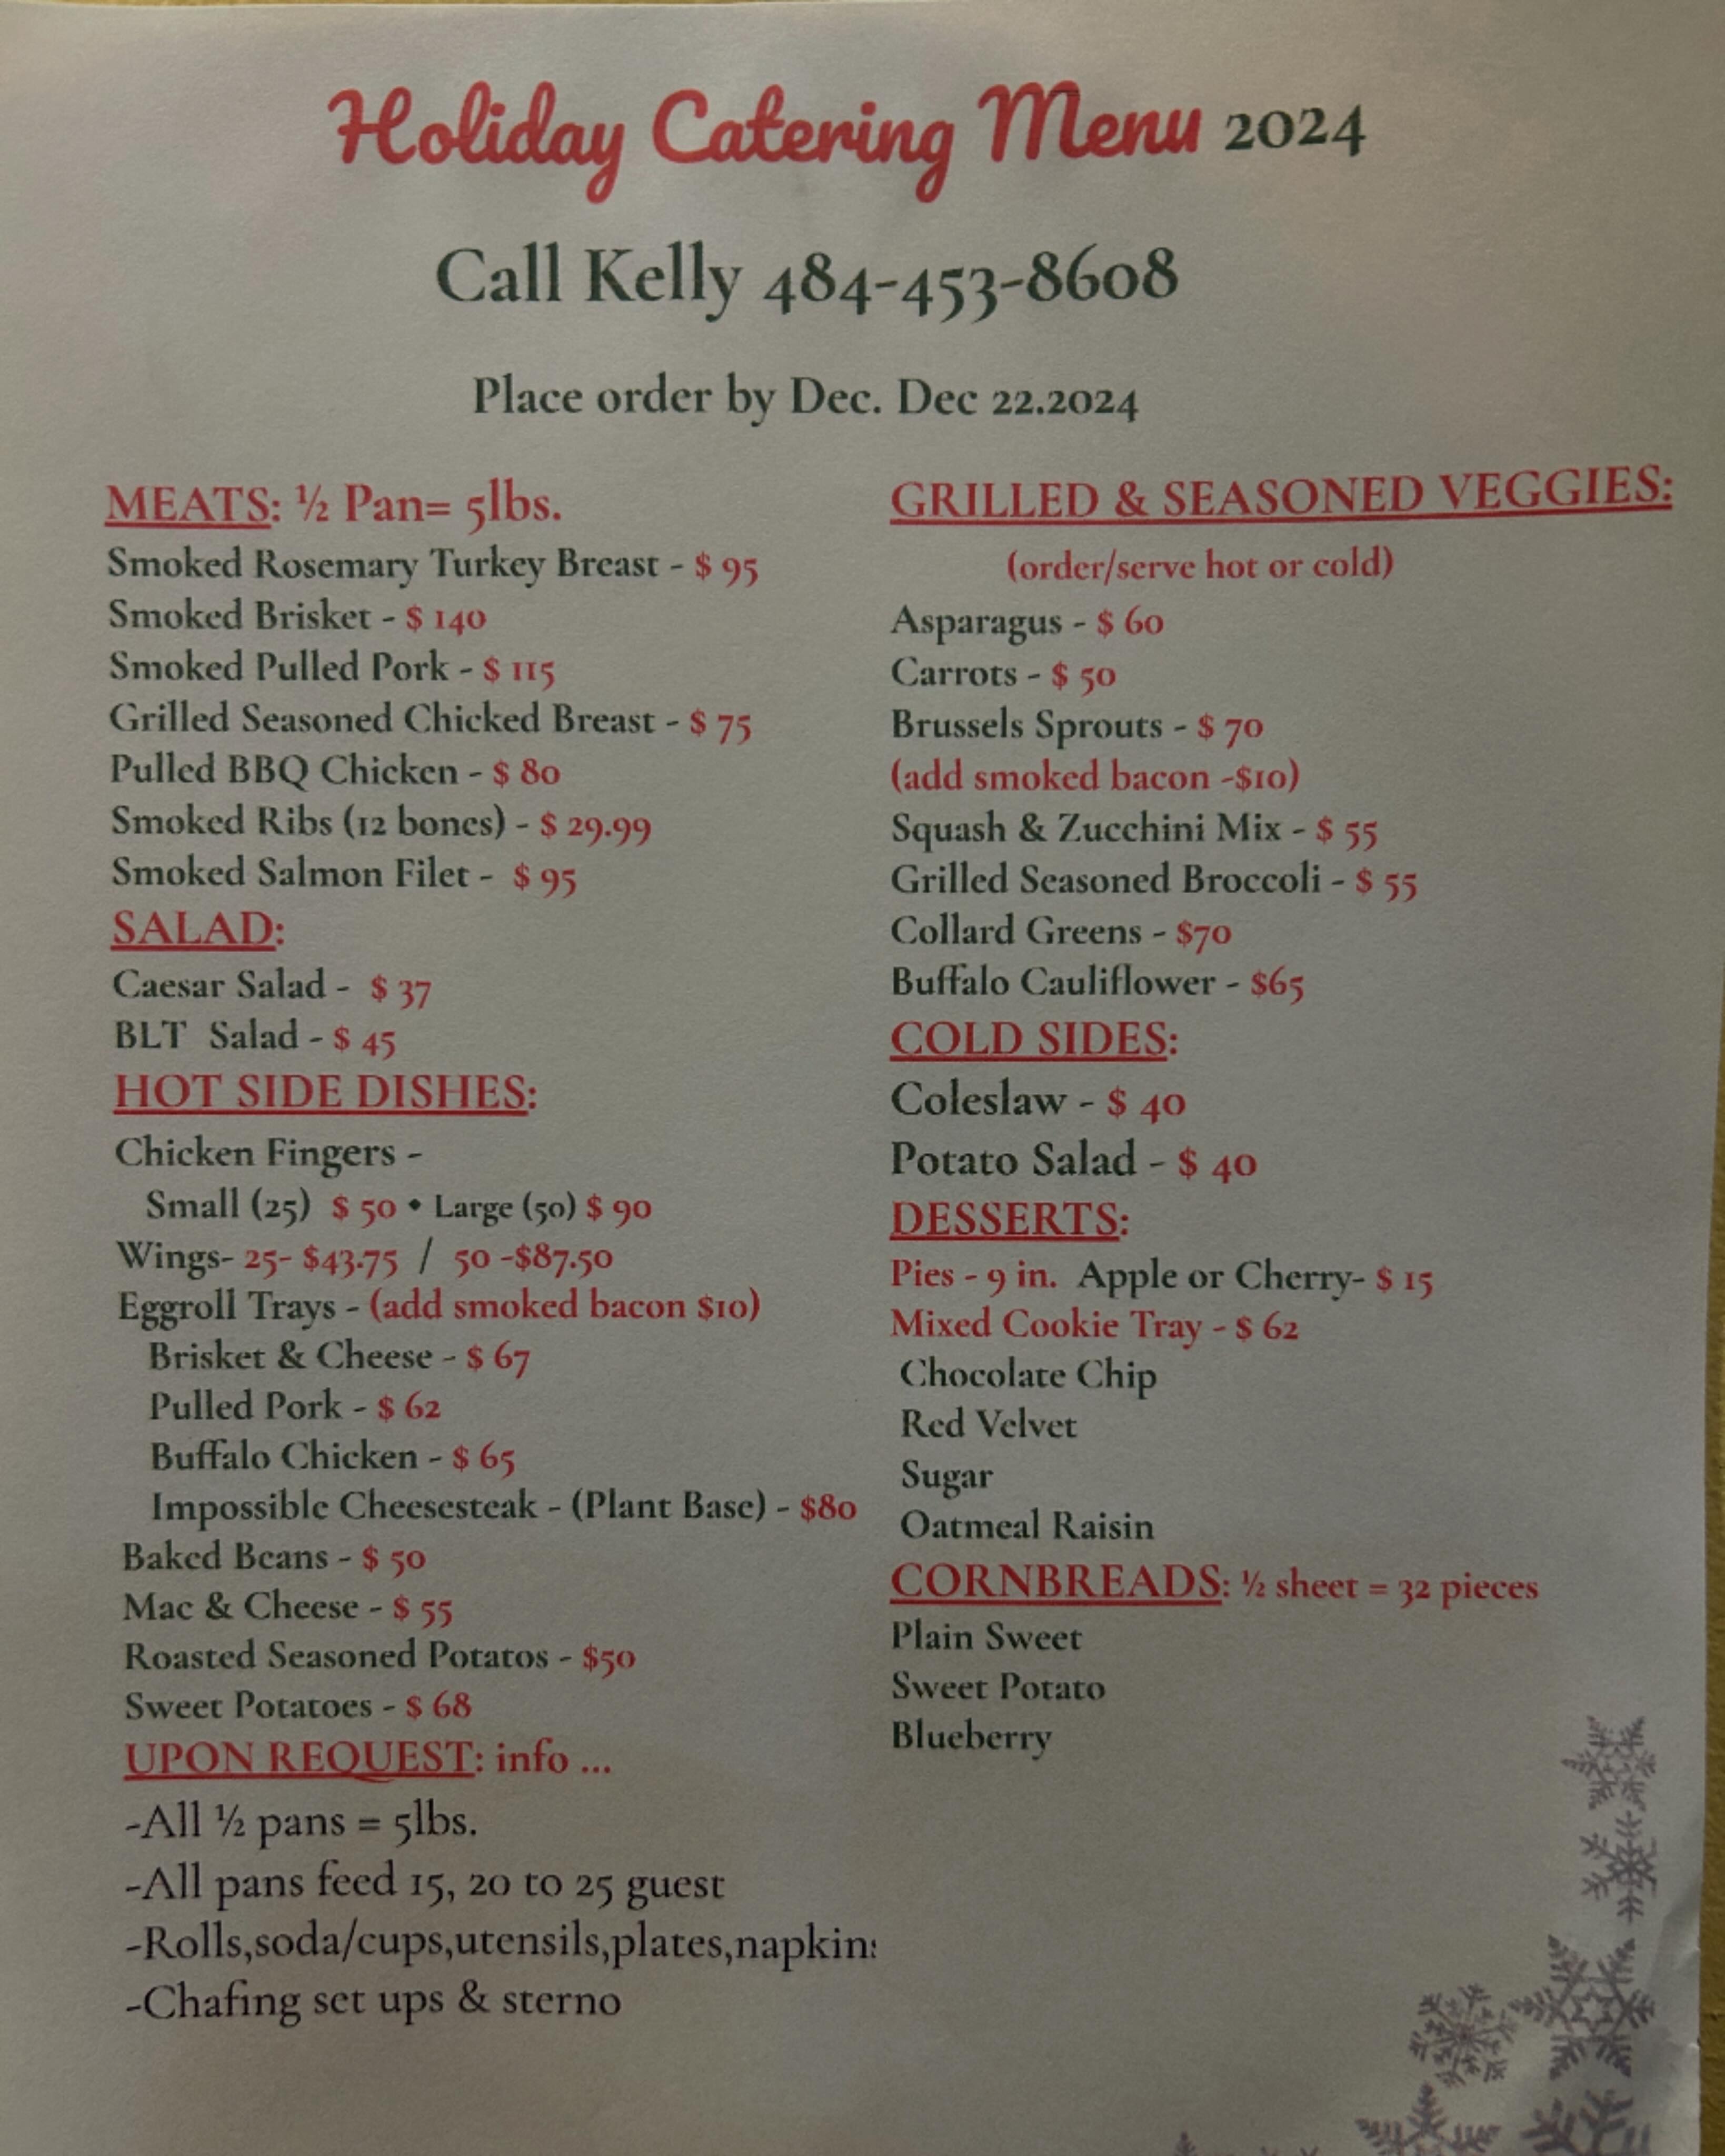 Holiday Catering Menu 2024
Call Kelly 484-453-8608
Place order by Dec. Dec 22.2024
MEATS: ½ Pan= 5lbs.
Smoked Rosemary Turkey Breast - $ 95
Smoked Brisket - $ 140
Smoked Pulled Pork - $ 115
Grilled Seasoned Chicked Breast - $ 75
Pulled BBQ Chicken - $ 80
Smoked Ribs (12 bones) - $ 29.99
Smoked Salmon Filet - $ 95
SALAD:
Caesar Salad - $ 37
BLT Salad - $ 45
HOT SIDE DISHES:
Chicken Fingers -
Small (25) $ 50 • Large (50) $ 90
Wings- 25- $43.75 / 50 -$87.50
Eggroll Trays - (add smoked bacon $10)
Brisket & Cheese - $ 67
Pulled Pork - $ 62
Buffalo Chicken - $ 65
Impossible Cheesesteak - (Plant Base) - $80
Baked Beans - $ 50
Mac & Cheese - $ 55
Roasted Seasoned Potatos - $50
Sweet Potatoes - $ 68
UPON REQUEST: info ...
-All ½ pans = 5lbs.
-All pans feed 15, 20 to 25 guest
-Rolls,soda/cups,utensils,plates,napkins
-Chafing set ups & sterno
GRILLED & SEASONED VEGGIES:
(order/serve hot or cold)
Asparagus - $ 60
Carrots - $ 50
Brussels Sprouts - $ 70
(add smoked bacon -$10)
Squash & Zucchini Mix - $ 55
Grilled Seasoned Broccoli - $ 55
Collard Greens - $70
Buffalo Cauliflower - $65
COLD SIDES:
Coleslaw - $ 40
Potato Salad - $ 40
DESSERTS:
Pies - 9 in. Apple or Cherry- $ 15
Mixed Cookie Tray - $ 62
Chocolate Chip
Red Velvet
Sugar
Oatmeal Raisin
CORNBREADS: ½ sheet = 32 pieces
Plain Sweet
Sweet Potato
Blueberry